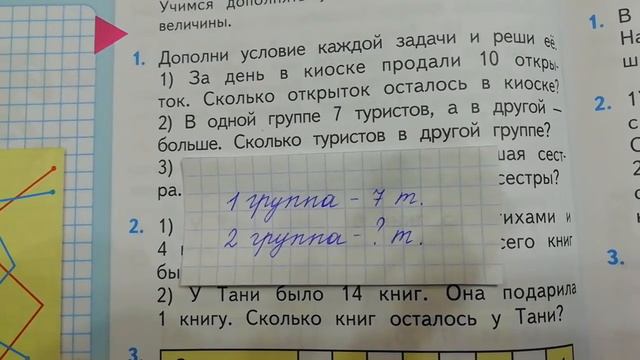 Учимся дополнять
величины.
1. Дополни условие каждой задачи и реши её.
1) За день в киоске продали 10 откры-
ток. Сколько открыток осталось в киоске?
2) В одной группе 7 туристов, а в другой –
больше. Сколько туристов в другой группе?
3)
ра. сестры?
1 группа - 7 т.
2 группа - ? т.
2. 1) тихами и
4 сего книг
бы
2) У Тани было 14 книг. Она подарила
1 книгу. Сколько книг осталось у Тани?
3.
1. В
На
ш
2. 1
с
С
2
к
3.